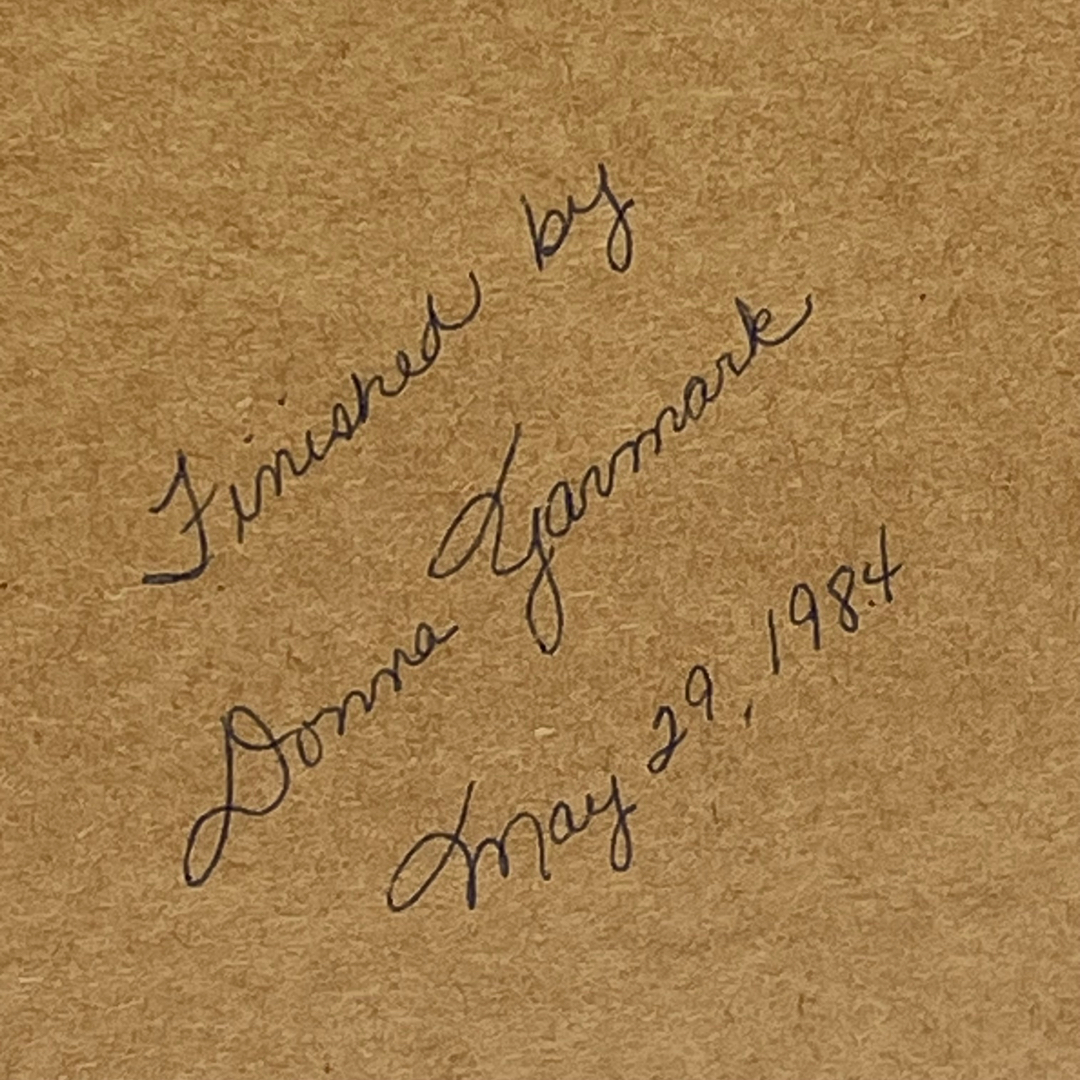 Finished by
Donna Yarmark
May 29, 1984